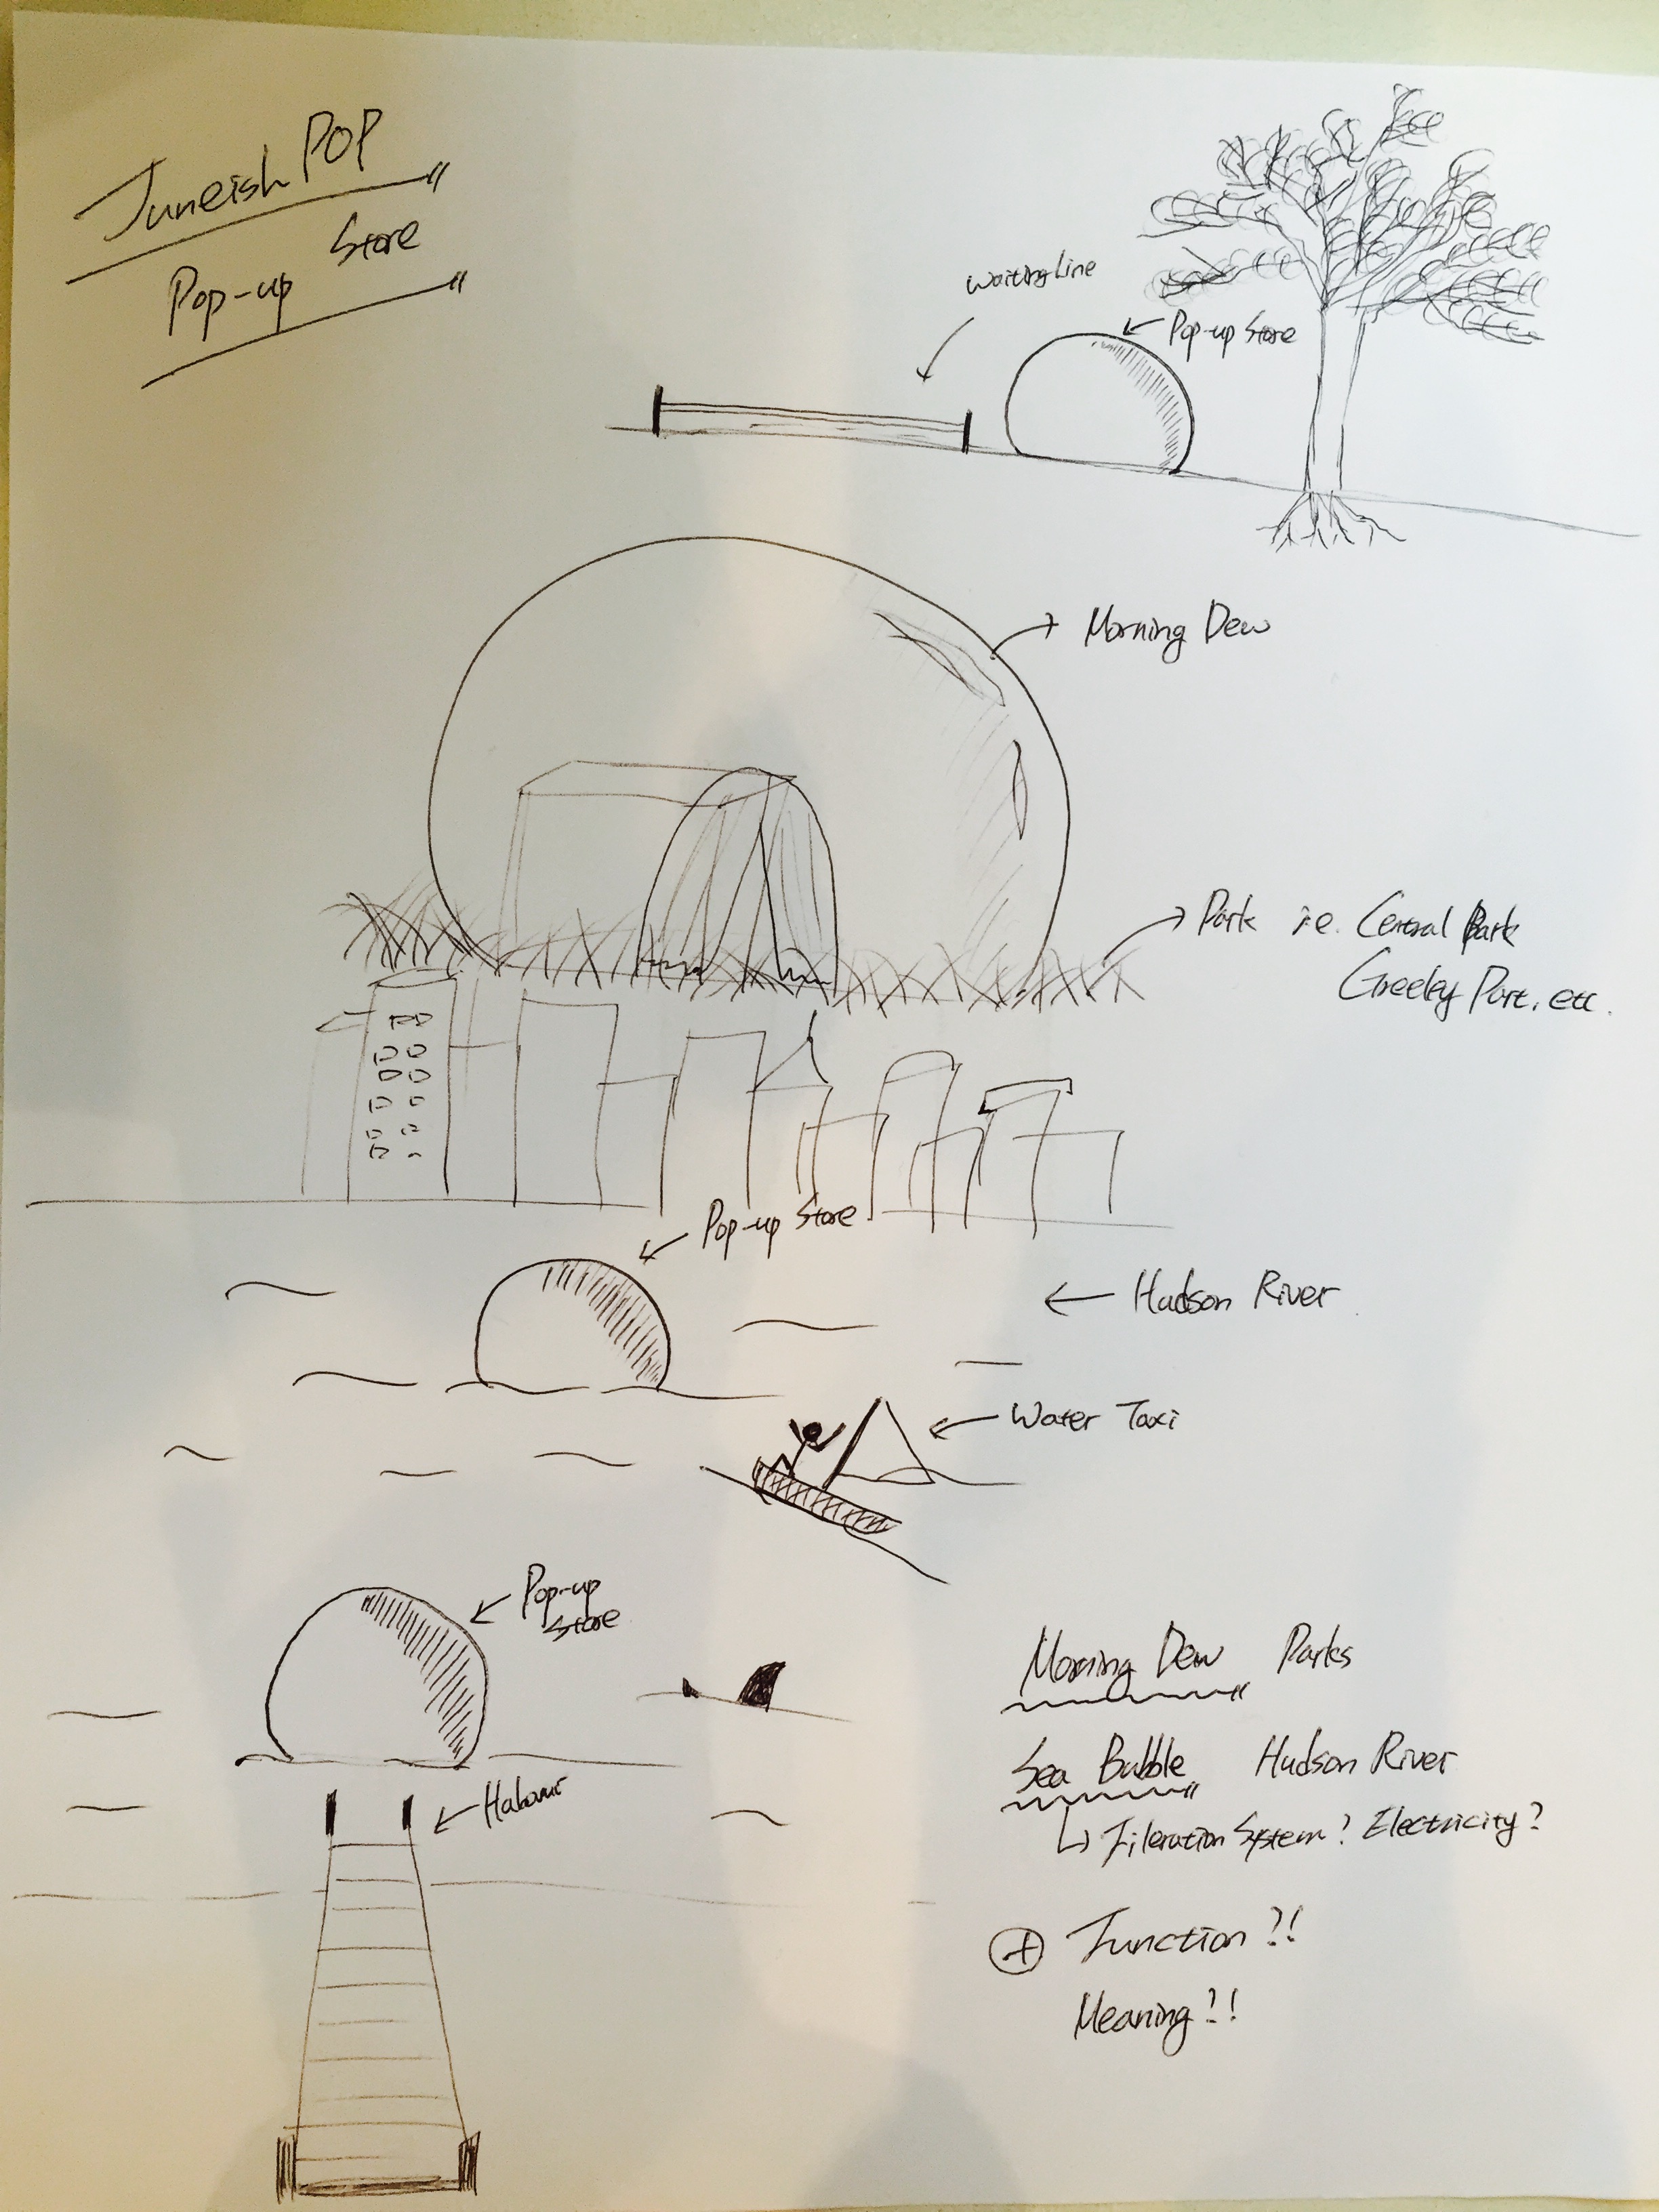 Juneish POP
Pop-up Store
Waiting Line
Pop-up Store
Morning Dew
Park i.e. Central Park
Greeley Part, etc.
Pop-up Store
Hudson River
Water Taxi
Pop-up
Store
Morning Dew Parks
Sea Bubble Hudson River
System? Electricity?
+ Function?!
Meaning?!